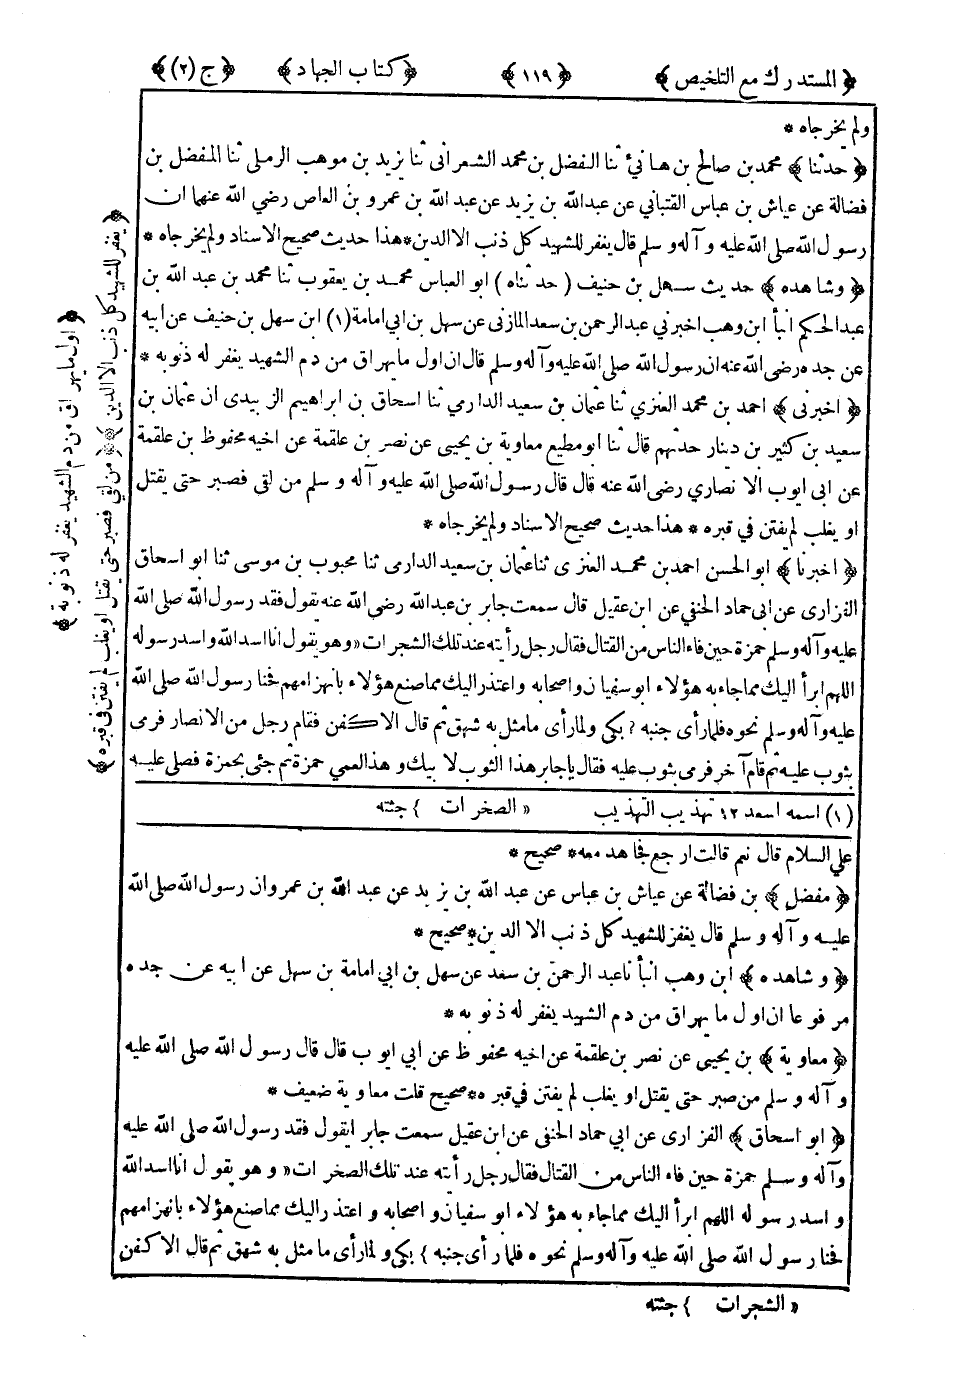 ﴿ المستدرك مع التلخيص ﴾ ﴿ ١١٩ ﴾ ﴿ كتاب الجهاد ﴾ ﴿ ج (٢) ﴾
ولم يخرجاه *
﴿ حدثنا ﴾ محمد بن صالح بن هانئ ثنا الفضل بن محمد الشعرانى ثنا يزيد بن موهب الرملى ثنا المفضل بن
فضالة عن عياش بن عباس القتباني عن عبدالله بن يزيد عن عبد الله بن عمرو بن العاص رضي الله عنهما ان
رسول الله صلى الله عليه وآله وسلم قال يغفر للشهيد كل ذنب الا الدين * هذا حديث صحيح الاسناد ولم يخرجاه *
﴿ وشاهده ﴾ حديث سهل بن حنيف ( حدثناه ) ابو العباس محمد بن يعقوب ثنا محمد بن عبد الله بن
عبد الحكم انبأ ابن وهب اخبرني عبد الرحمن بن سعد المازنى عن سهل بن ابي امامة (١) ابن سهل بن حنيف عن ابيه
عن جده رضى الله عنه ان رسول الله صلى الله عليه وآله وسلم قال ان اول ما يهراق من دم الشهيد يغفر له ذنوبه *
﴿ اخبرنى ﴾ احمد بن محمد العنزي ثنا عثمان بن سعيد الدارمي ثنا اسحاق بن ابراهيم الزبيدى ان عثمان بن
سعيد بن كثير بن دينار حدثهم قال ثنا ابو مطيع معاوية بن يحيى عن نصر بن علقمة عن اخيه محفوظ بن علقمة
عن ابى ايوب الانصاري رضى الله عنه قال قال رسول الله صلى الله عليه وآله وسلم من لقى فصبر حتى يقتل
او يغلب لم يفتن في قبره * هذا حديث صحيح الاسناد ولم يخرجاه *
﴿ اخبرنا ﴾ ابو الحسن احمد بن محمد العنزى ثنا عثمان بن سعيد الدارمى ثنا محبوب بن موسى ثنا ابو اسحاق
الفزارى عن ابى حماد الحنفي عن ابن عقيل قال سمعت جابر بن عبدالله رضي الله عنه يقول فقد رسول الله صلى الله
عليه وآله وسلم حمزة حين فاء الناس من القتال فقال رجل رأيته عند تلك الشجرات « وهو يقول انا اسد الله واسد رسوله
اللهم ابرأ اليك مما جاء به هؤلاء ابو سفيان واصحابه واعتذر اليك مما صنع هؤلاء بانهزامهم فحنا رسول الله صلى الله
عليه وآله وسلم نحوه فلما رأى جنبه } بكى ولما رأى ما مثل به شهق ثم قال الا كفن فقام رجل من الانصار فرمى
بثوب عليه ثم قام آخر فرمى بثوب عليه فقال يا جابر هذا الثوب لابيك وهذا لعمي حمزة ثم جئى بحمزة فصلى عليه
(١) اسمه اسعد ١٢ تهذيب التهذيب « الصخرات } جثته
علي السلام قال نعم قالت ارجع فجاهد معه * صحيح *
﴿ مفضل ﴾ بن فضالة عن عياش بن عباس عن عبد الله بن يزيد عن عبد الله بن عمرو ان رسول الله صلى الله
عليه وآله وسلم قال يغفر للشهيد كل ذنب الا الدين * صحيح *
﴿ وشاهده ﴾ ابن وهب انبأنا عبد الرحمن بن سعد عن سهل بن ابي امامة بن سهل عن ابيه عن جده
مرفوعا ان اول ما يهراق من دم الشهيد يغفر له ذنوبه *
﴿ معاوية ﴾ بن يحيى عن نصر بن علقمة عن اخيه محفوظ عن أبي ايوب قال قال رسول الله صلى الله عليه
وآله وسلم من صبر حتى يقتل او يغلب لم يفتن في قبره * صحيح قلت معاوية ضعيف *
﴿ ابو اسحاق ﴾ الفزارى عن ابي حماد الحنفى عن ابن عقيل سمعت جابرا يقول فقد رسول الله صلى الله عليه
وآله وسلم حمزة حين فاء الناس من القتال فقال رجل رأيته عند تلك الصخرات « وهو يقول انا اسد الله
واسد رسوله اللهم ابرأ اليك مما جاء به هؤلاء ابو سفيان واصحابه واعتذر اليك مما صنع هؤلاء بانهزامهم
فحنا رسول الله صلى الله عليه وآله وسلم نحوه فلما رأى جنبه } بكى ولما رأى ما مثل به شهق ثم قال الا كفن
« الشجرات } جثته
﴿ يغفر للشهيد كل ذنب الا الدين ﴾ ﴿ من لقي فصبر حتى يقتل او يغلب لم يفتن في قبره ﴾
﴿ اول ما يهراق من دم الشهيد يغفر له ذنوبه ﴾